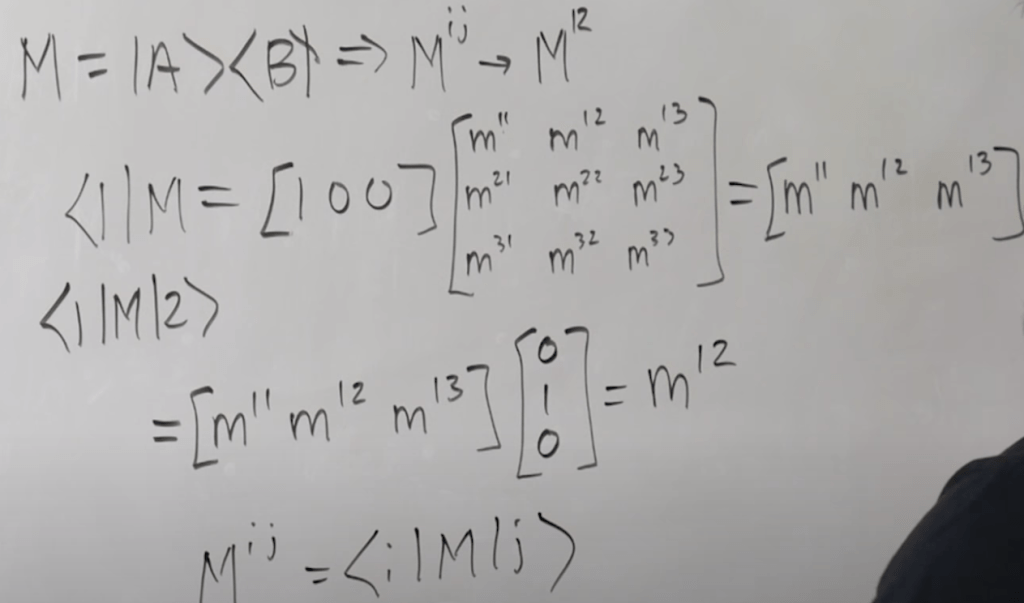 M = |A><B| => M^{ij} → M^{12}
<1|M = [1 0 0] [m^{11} m^{12} m^{13}; m^{21} m^{22} m^{23}; m^{31} m^{32} m^{33}] = [m^{11} m^{12} m^{13}]
<1|M|2>
= [m^{11} m^{12} m^{13}] [0; 1; 0] = m^{12}
M^{ij} = <i|M|j>